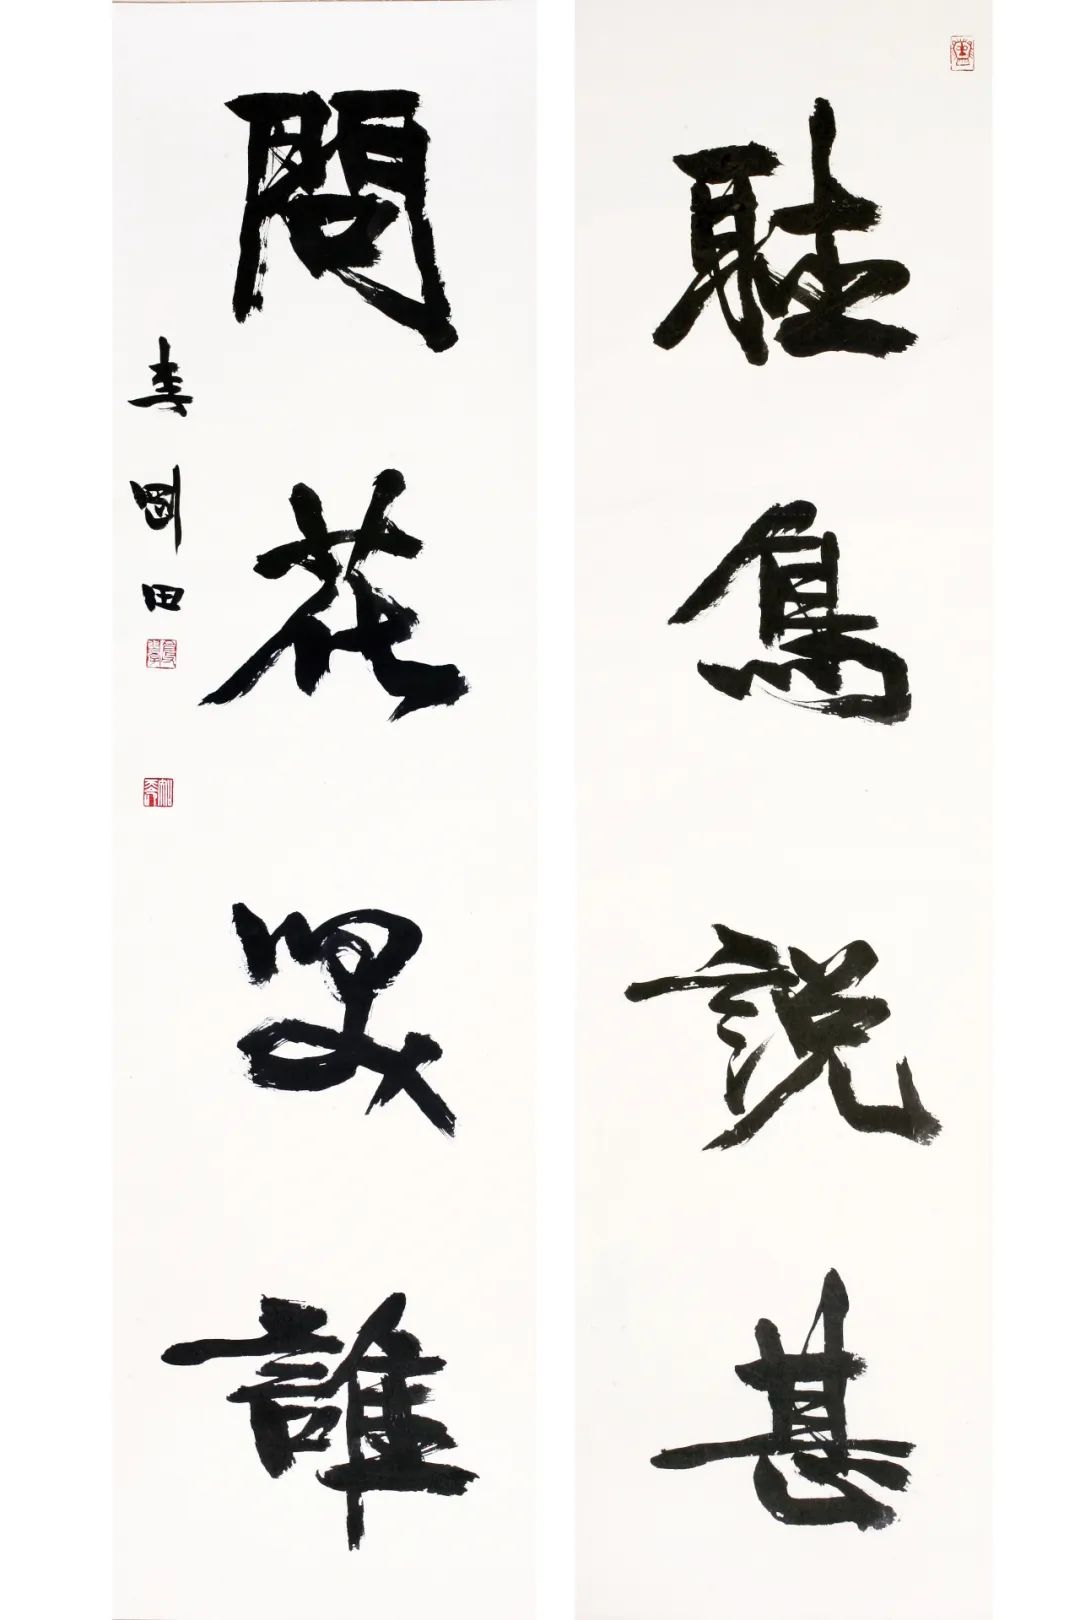 聽鳥說甚
問花笑誰
李剛田